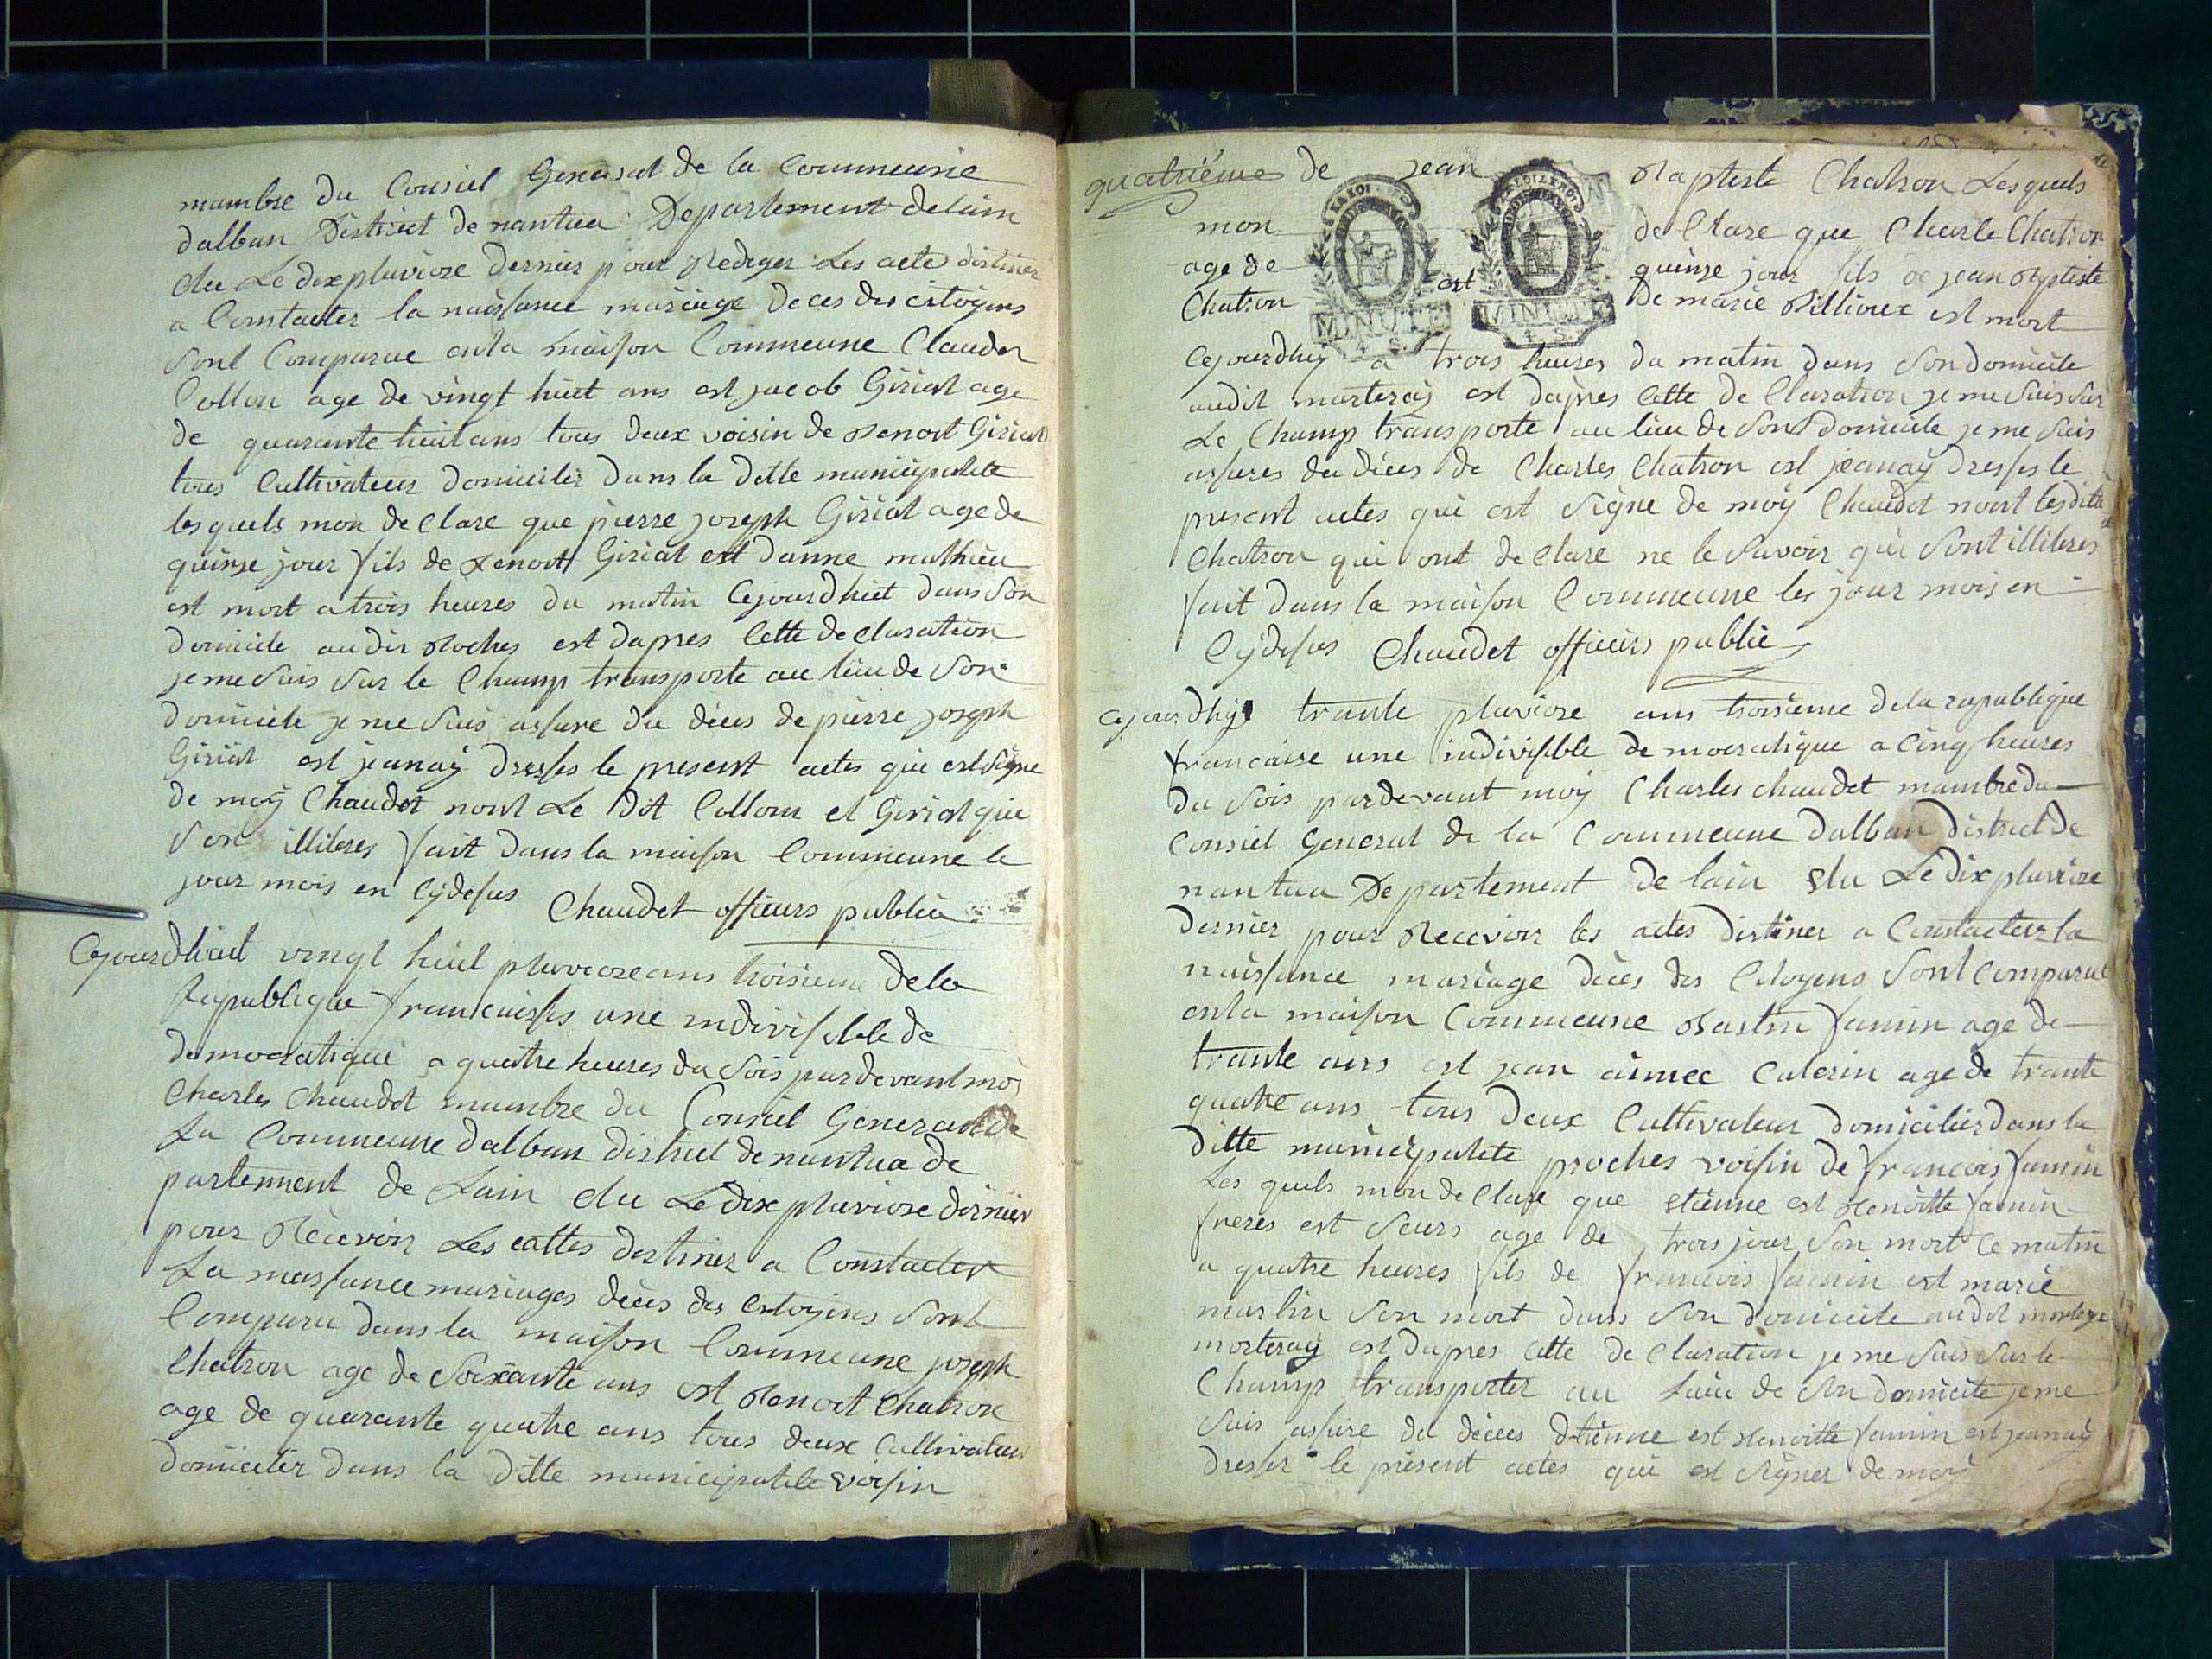 mambre du Consiel General de la Commeune
dalban District de nantua Departement delain
elu Le dix pluvioze dernier pour Rediger Les acte destiner
a Constacter la naissance mariage deces des citoyens
sont Comparue enla maison Commeune Clauder
Collon age de vingt huit ans est jacob Giriat age
de quarante huit ans tous deux voisin de Benoit Giriat
tous Cultivateur domicilier dans la ditte municipalite
lesquels mon declare que pierre joseph Giriat age de
quinse jour fils de Benoit Giriat est danne mathieu
est mort a trois heures du matin Cejourdhuit dans Son
domicile audit Roches est dapres Cette declaration
je me Suis Sur le Champ transporte au lieu de Son
domicile je me Suis assure du deces de pierre joseph
Giriat est jeanay dresses le present actes qui est Signe
de moy Chaudet nont Le dit Collom et Giriat que
Son illiteres fait dans la maison Commeune le
jour mois en Cydesus Chaudet officiers public
Cejourdhuit vingt huit pluvioze ans troisieme dela
Republique francaisses une indivisible de
democratique a quatre heures du Soir pardevant moi
Charles Chaudet mambre du Consiel General de
La Commeune dalban district de nantua de
partement de Lain elu Le dix pluvioze dernier
pour Recevoir Les acttes destiner a Constacter
La naissance mariages deces des Citoyens Sont
Comparu dans la maison Commeune joseph
Chatron age de Soixante ans est Benoit Chatron
age de quarante quatre ans tous deux Cultivateur
domicilier dans la ditte municipalite voisin
quatrieme de jean Baptiste Chatron Lesquels
mon declare que Charle Chatron
age de quinse jour fils de jean Baptiste
Chatron est de marie Billioux est mort
MINUTE 4 S.
MINUTE 4 S.
Cejourdhuy a trois heures du matin dans Son domicile
audit marteray est dapres Cette declaration je me Suis Sur
Le Champ transporte au lieu de Sont domicile je me Suis
assures du deces de Charles Chatron est jeanay dresses le
present actes qui est Signe de moy Chaudet nont lesdits
Chatron qui ont declare ne le Savoir qui Sont illiteres
fait dans la maison Commeune les jour mois en
Cydesus Chaudet officiers public
Cejourdhy trante pluvioze ans troisieme dela rapublique
francaise une indivisible democratique a Cinq heures
du Soir pardevant moy Charles chaudet mambre du
Consiel General de la Commeune dalban district de
nantua Departement de lain elu Le dix pluvioze
dernier pour Recevoir les actes destiner a Constacter la
naissance mariage deces des Citoyens Sont Comparue
enla maison Commeune Bastin famin age de
trante ans est jean aimee Caterin age de trante
quatre ans tous deux Cultivateur domicilier dans la
ditte municipalite proches voisin de francois famin
Les quels mon declare que etienne est Benoitte famin
freres est Seurs age de trois jour Son mort ce matin
a quatre heures fils de francois famin est marie
marlin Son mort dans Son domicile audit
morteray est dapres Cette declaration je me Suis Sur le
Champ transporter au Lieu de Son domicile je me
Suis assure du decees detienne est Benoitte famin est jeanay
dresser le present actes qui est Signer de moy